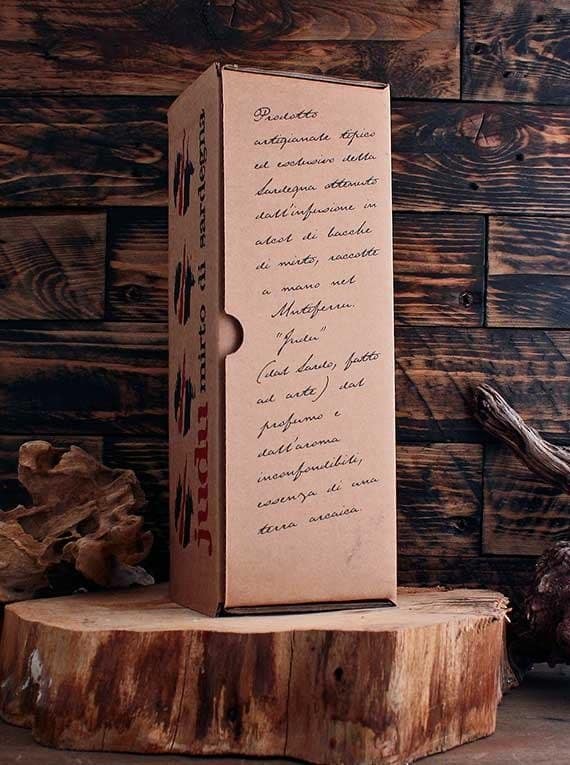 judu mirto di sardegna
Prodotto
artigianale tipico
ed esclusivo della
Sardegna ottenuto
dall'infusione in
alcol di bacche
di mirto, raccolte
a mano nel
Mutiferru.
"Judu"
(dal Sardo, fatto
ad arte) dal
profumo e
dall'aroma
inconfondibili,
essenza di una
terra arcaica.